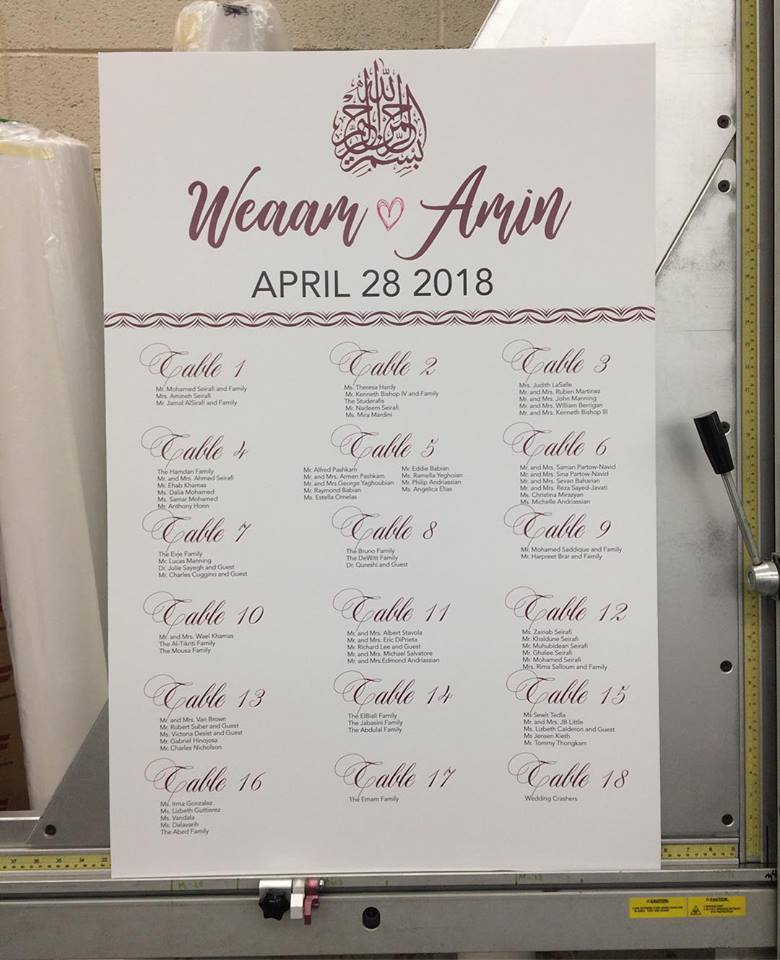 بسم الله الرحمن الرحيم
Weaam Amin
APRIL 28 2018
Table 1
Mr. Mohamed Seirafi and Family
Mrs. Amineh Seirafi
Mr. Jamal AlSirafi and Family
Table 2
Ms. Theresa Hardy
Mr. Kenneth Bishop IV and Family
The Studerafis
Mr. Nadeem Seirafi
Ms. Mira Mardini
Table 3
Mrs. Judith LaSalle
Mr. and Mrs. Ruben Martinez
Mr. and Mrs. John Manning
Mr. and Mrs. William Berrigan
Mr. and Mrs. Kenneth Bishop III
Table 4
The Hamdan Family
Mr. and Mrs. Ahmed Seirafi
Mr. Ehab Khamas
Ms. Dalia Mohamed
Ms. Samar Mohamed
Mr. Anthony Honn
Table 5
Mr. Alfred Pashkam
Mr. and Mrs. Armen Pashkam
Mr. and Mrs George Yaghoubian
Mr. Raymond Babian
Ms. Estella Ornelas
Mr. Eddie Babian
Ms. Ramella Yeghoian
Mr. Philip Andriassian
Ms. Angelica Elias
Table 6
Mr. and Mrs. Saman Partow-Navid
Mr. and Mrs. Sina Partow-Navid
Mr. and Mrs. Sevan Baharian
Mr. and Mrs. Reza Sayed-Javati
Ms. Christina Mirazyan
Ms. Michelle Andriassian
Table 7
The Evje Family
Mr. Lucas Manning
Dr. Julie Sayegh and Guest
Mr. Charles Cuggino and Guest
Table 8
The Bruno Family
The DeWitt Family
Dr. Qureshi and Guest
Table 9
Mr. Mohamed Saddique and Family
Mr. Harpreet Brar and Family
Table 10
Mr. and Mrs. Wael Khamas
The Al-Tikriti Family
The Mousa Family
Table 11
Mr. and Mrs. Albert Stavola
Mr. and Mrs. Eric DiPrieta
Mr. Richard Lee and Guest
Mr. and Mrs. Michael Salvatore
Mr. and Mrs.Edmond Andriassian
Table 12
Ms. Zainab Seirafi
Mr. Khaldune Seirafi
Mr. Muhubidean Seirafi
Mr. Ghalee Seirafi
Mr. Mohamed Seirafi
Mrs. Rima Salloum and Family
Table 13
Mr. and Mrs. Van Brown
Mr. Robert Suber and Guest
Ms. Victoria Desist and Guest
Mr. Gabriel Hinojosa
Mr. Charles Nicholson
Table 14
The ElBiali Family
The Jabasini Family
The Abdulal Family
Table 15
Ms Sewit Tedla
Mr. and Mrs. JB Little
Ms. Lizbeth Calderon and Guest
Ms Jensen Kieth
Mr. Tommy Thongkam
Table 16
Ms. Irma Gonzalez
Ms. Lizbeth Guttierez
Ms. Vandala
Ms. Dalavarih
The Abed Family
Table 17
The Emam Family
Table 18
Wedding Crashers
CAUTION
CAUTION